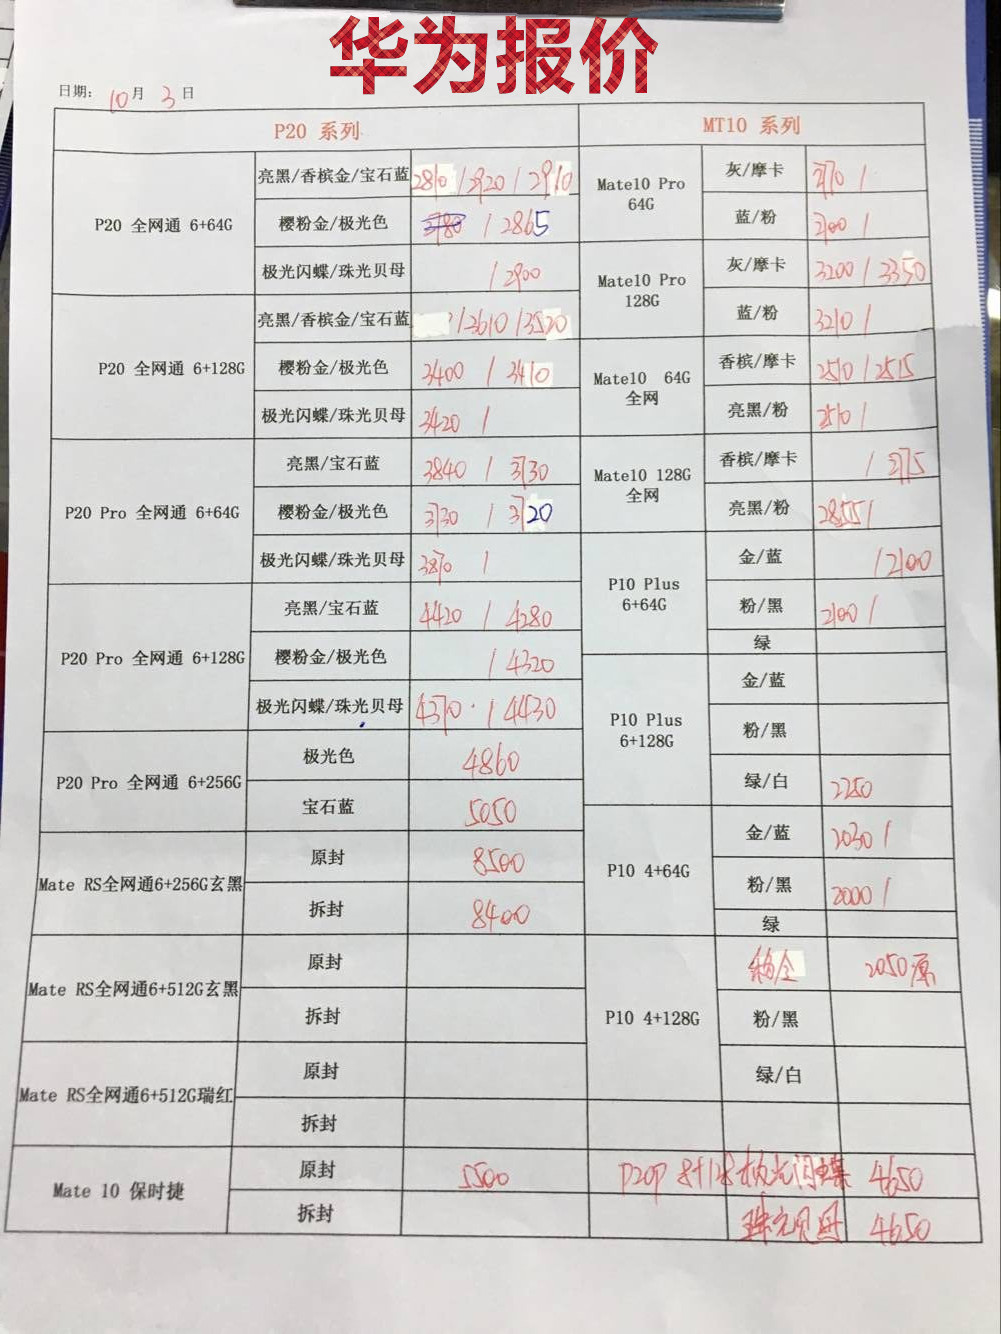 华为报价
日期: 10月 3日
P20 系列
MT10 系列
P20 全网通 6+64G
亮黑/香槟金/宝石蓝 2810 / 2920 / 2910
樱粉金/极光色 / 2865
极光闪蝶/珠光贝母 / 2900
P20 全网通 6+128G
亮黑/香槟金/宝石蓝 / 3610 / 3520
樱粉金/极光色 3400 / 3410
极光闪蝶/珠光贝母 3420 /
P20 Pro 全网通 6+64G
亮黑/宝石蓝 3840 / 3730
樱粉金/极光色 3730 / 3720
极光闪蝶/珠光贝母 3870 /
P20 Pro 全网通 6+128G
亮黑/宝石蓝 4420 / 4280
樱粉金/极光色 / 4320
极光闪蝶/珠光贝母 4370 / 4430
P20 Pro 全网通 6+256G
极光色 4860
宝石蓝 5050
Mate RS全网通6+256G玄黑
原封 8500
拆封 8400
Mate RS全网通6+512G玄黑
原封
拆封
Mate RS全网通6+512G瑞红
原封
拆封
Mate 10 保时捷
原封 5500
拆封
Mate10 Pro
64G
灰/摩卡
蓝/粉
Mate10 Pro
128G
灰/摩卡 3200 / 3350
蓝/粉 3210 /
Mate10 64G
全网
香槟/摩卡 2510 / 2515
亮黑/粉 2510 /
Mate10 128G
全网
香槟/摩卡 / 2775
亮黑/粉 2855 /
P10 Plus
6+64G
金/蓝 / 2100
粉/黑 2100 /
绿
P10 Plus
6+128G
金/蓝
粉/黑
绿/白 2250
P10 4+64G
金/蓝 2030 /
粉/黑 2000 /
绿
P10 4+128G
2050原
粉/黑
绿/白
P20P 8+128 极光闪蝶 4650
珠光贝母 4650